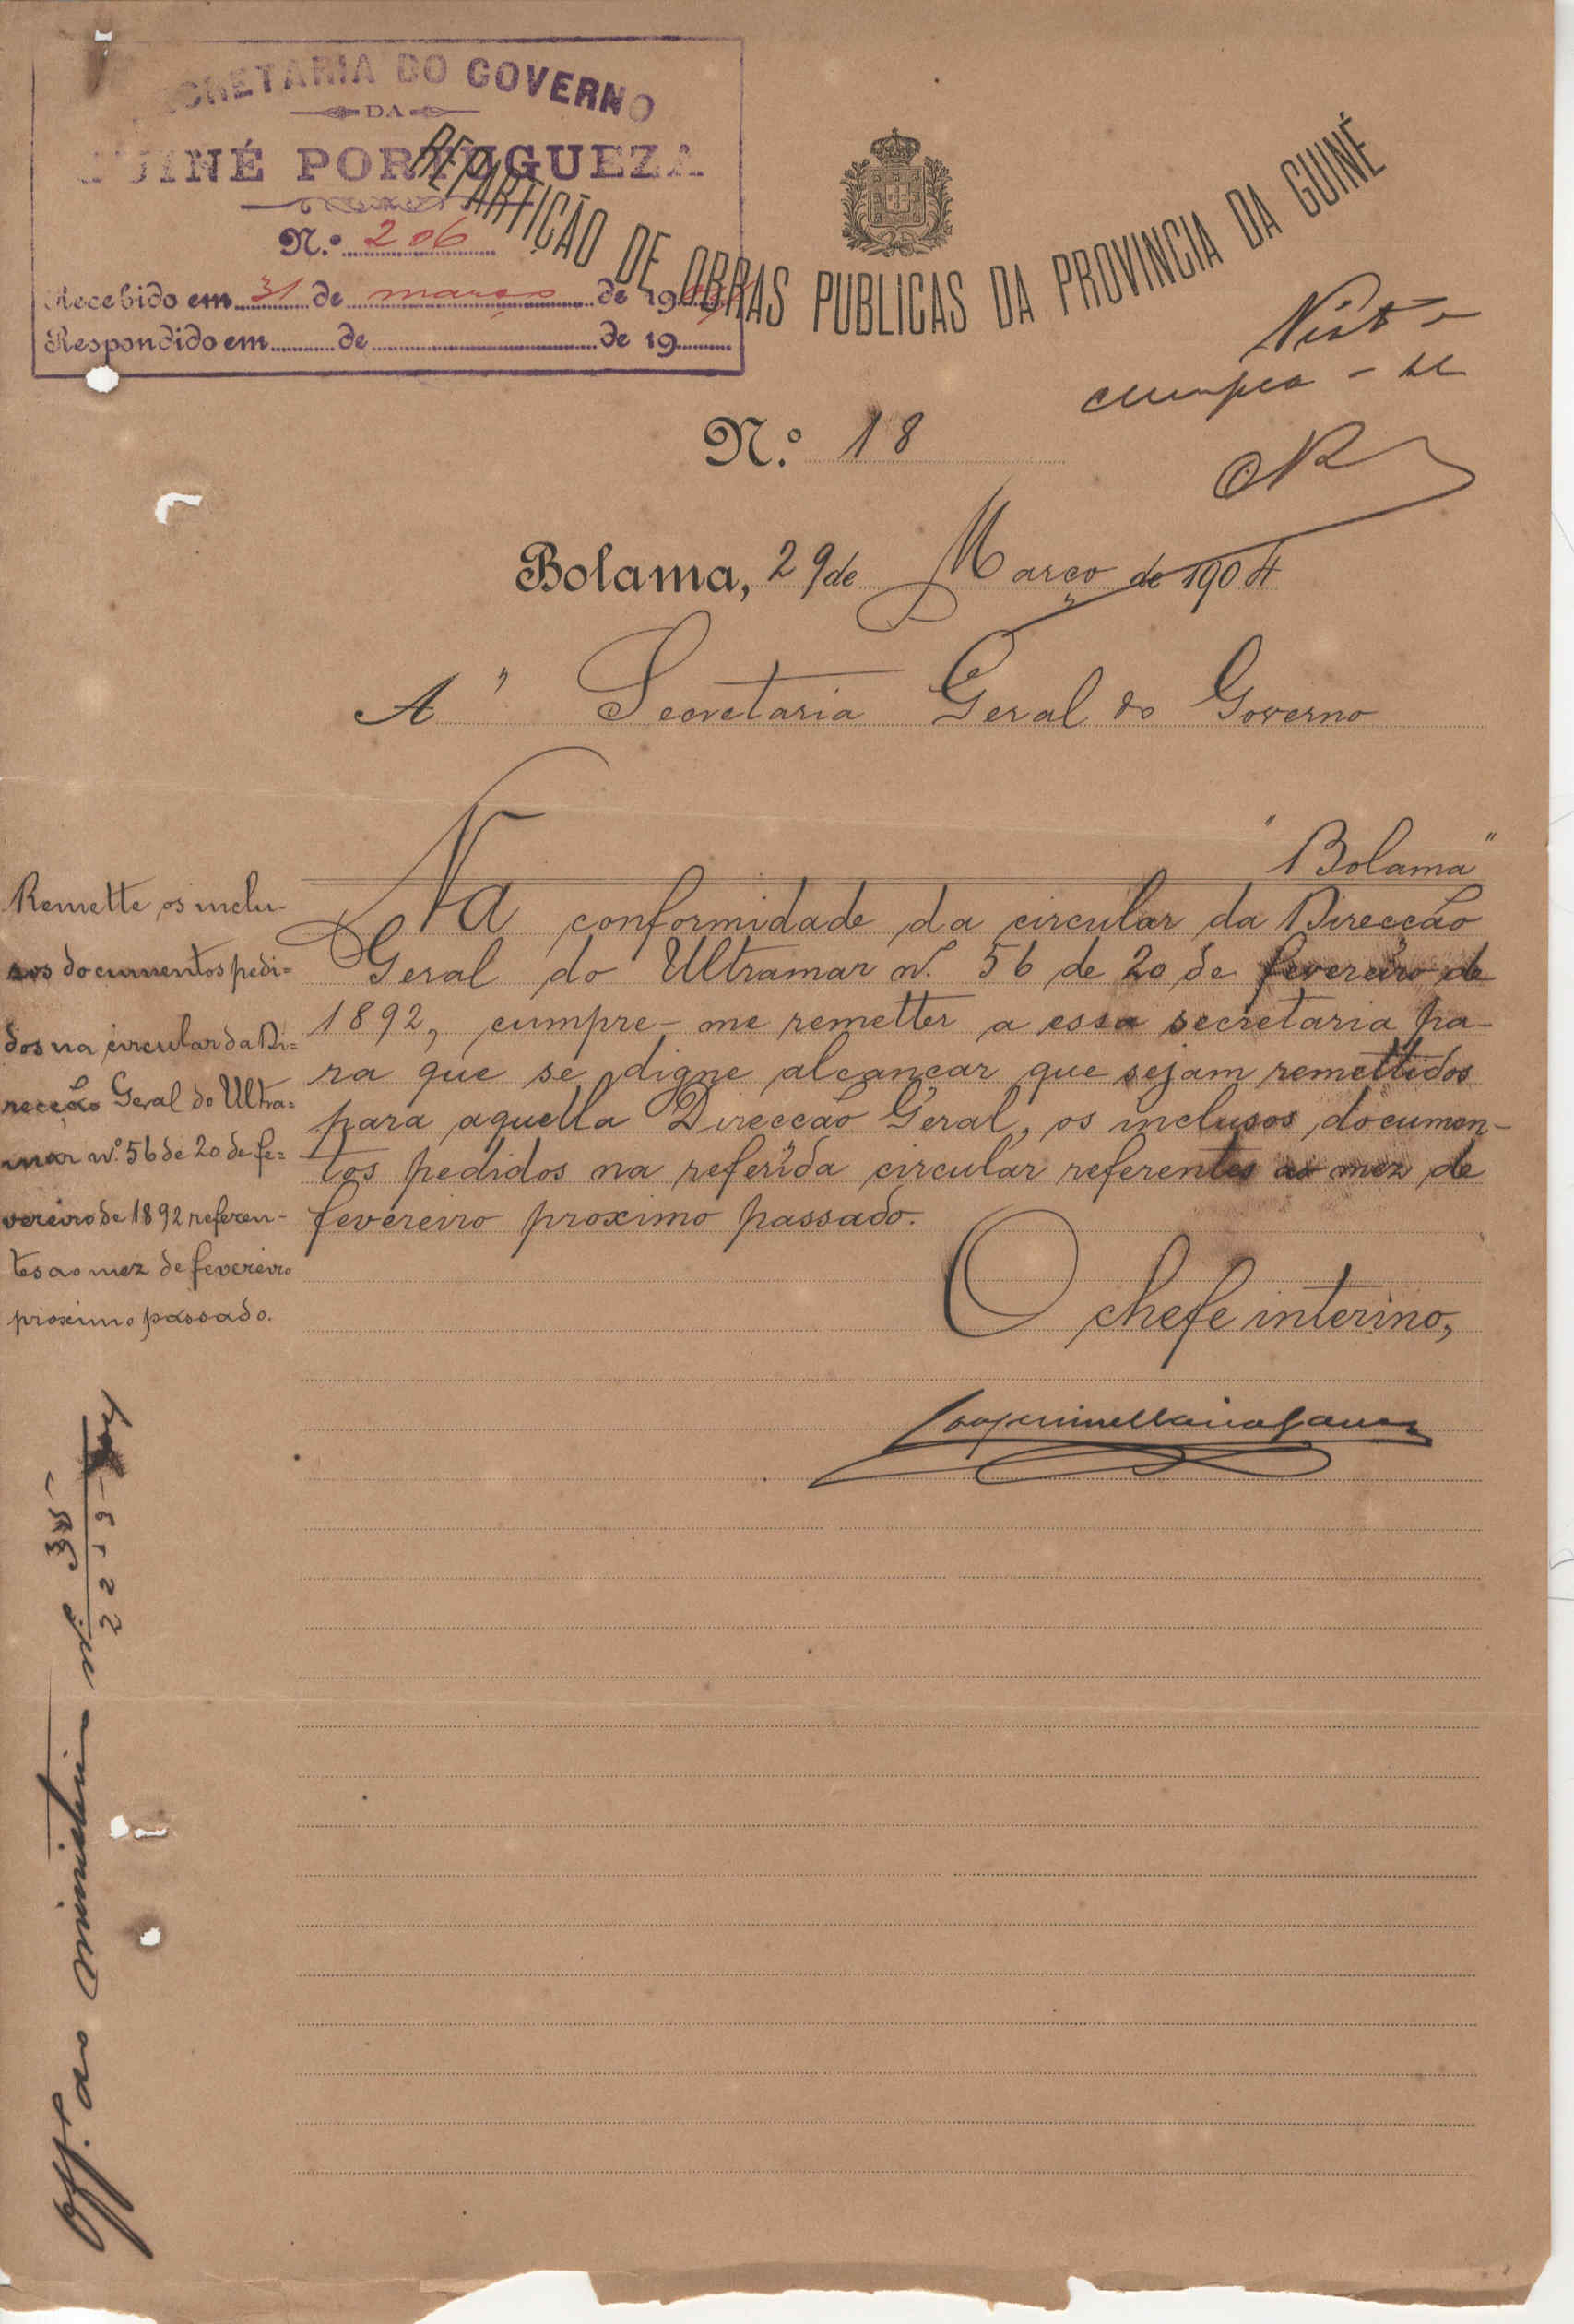 SECRETARIA DO GOVERNO
DA
GUINÉ PORTUGUEZA
N.º 206
Recebido em 31 de março de 1904
Respondido em de de 19
REPARTIÇÃO DE OBRAS PUBLICAS DA PROVINCIA DA GUINÉ
Visto
cumpra-se
N.º 18
Bolama, 29 de Março de 1904
A' Secretaria Geral do Governo
"Bolama"
Na conformidade da circular da Direcção
Geral do Ultramar n.º 56 de 20 de fevereiro de
1892, cumpre-me remetter a essa secretaria pa-
ra que se digne alcançar que sejam remettidos
para aquella Direcção Geral, os inclusos documen-
tos pedidos na referida circular referentes ao mez de
fevereiro proximo passado.
O chefe interino,
Remette os inclu-
sos documentos pedi=
dos na circular da Di=
recção Geral do Ultra=
mar n.º 56 de 20 de fe=
vereiro de 1892 referen-
tes ao mez de fevereiro
proximo passado.
Off.º ao ministerio n.º 35
22-3-